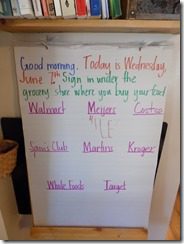 Good morning. Today is Wednesday,
June 2nd Sign in under the
grocery store where you buy your food
Walmart Meijers Costco
Sam's Club Martins Kroger
Whole Foods Target